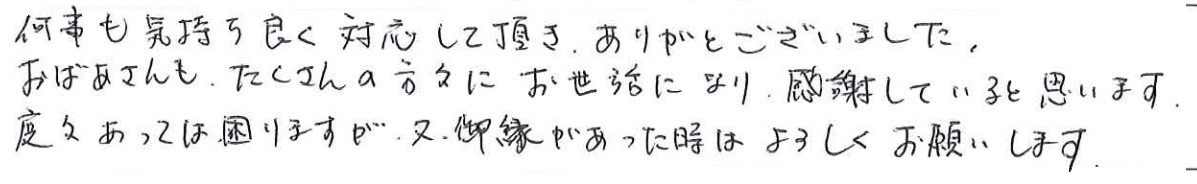 何事も気持ち良く対応して頂き、ありがとございました。
おばあさんも、たくさんの方々にお世話になり、感謝していると思います。
度々あっては困りますが、又、御縁があった時はよろしくお願いします。